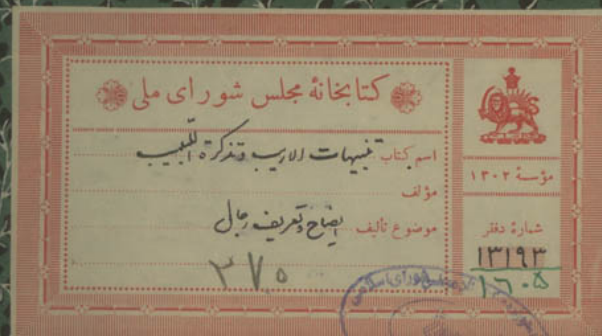 کتابخانهٔ مجلس شورای ملی
اسم کتاب تنبیهات الاریب وتذکرة اللبیب
مؤلف
موضوع تألیف ایضاح وتعریف رجال
۳۷۵
مؤسسهٔ ۱۳۰۲
شمارهٔ دفتر
۱۳۱۹۳
۱۶۰۵